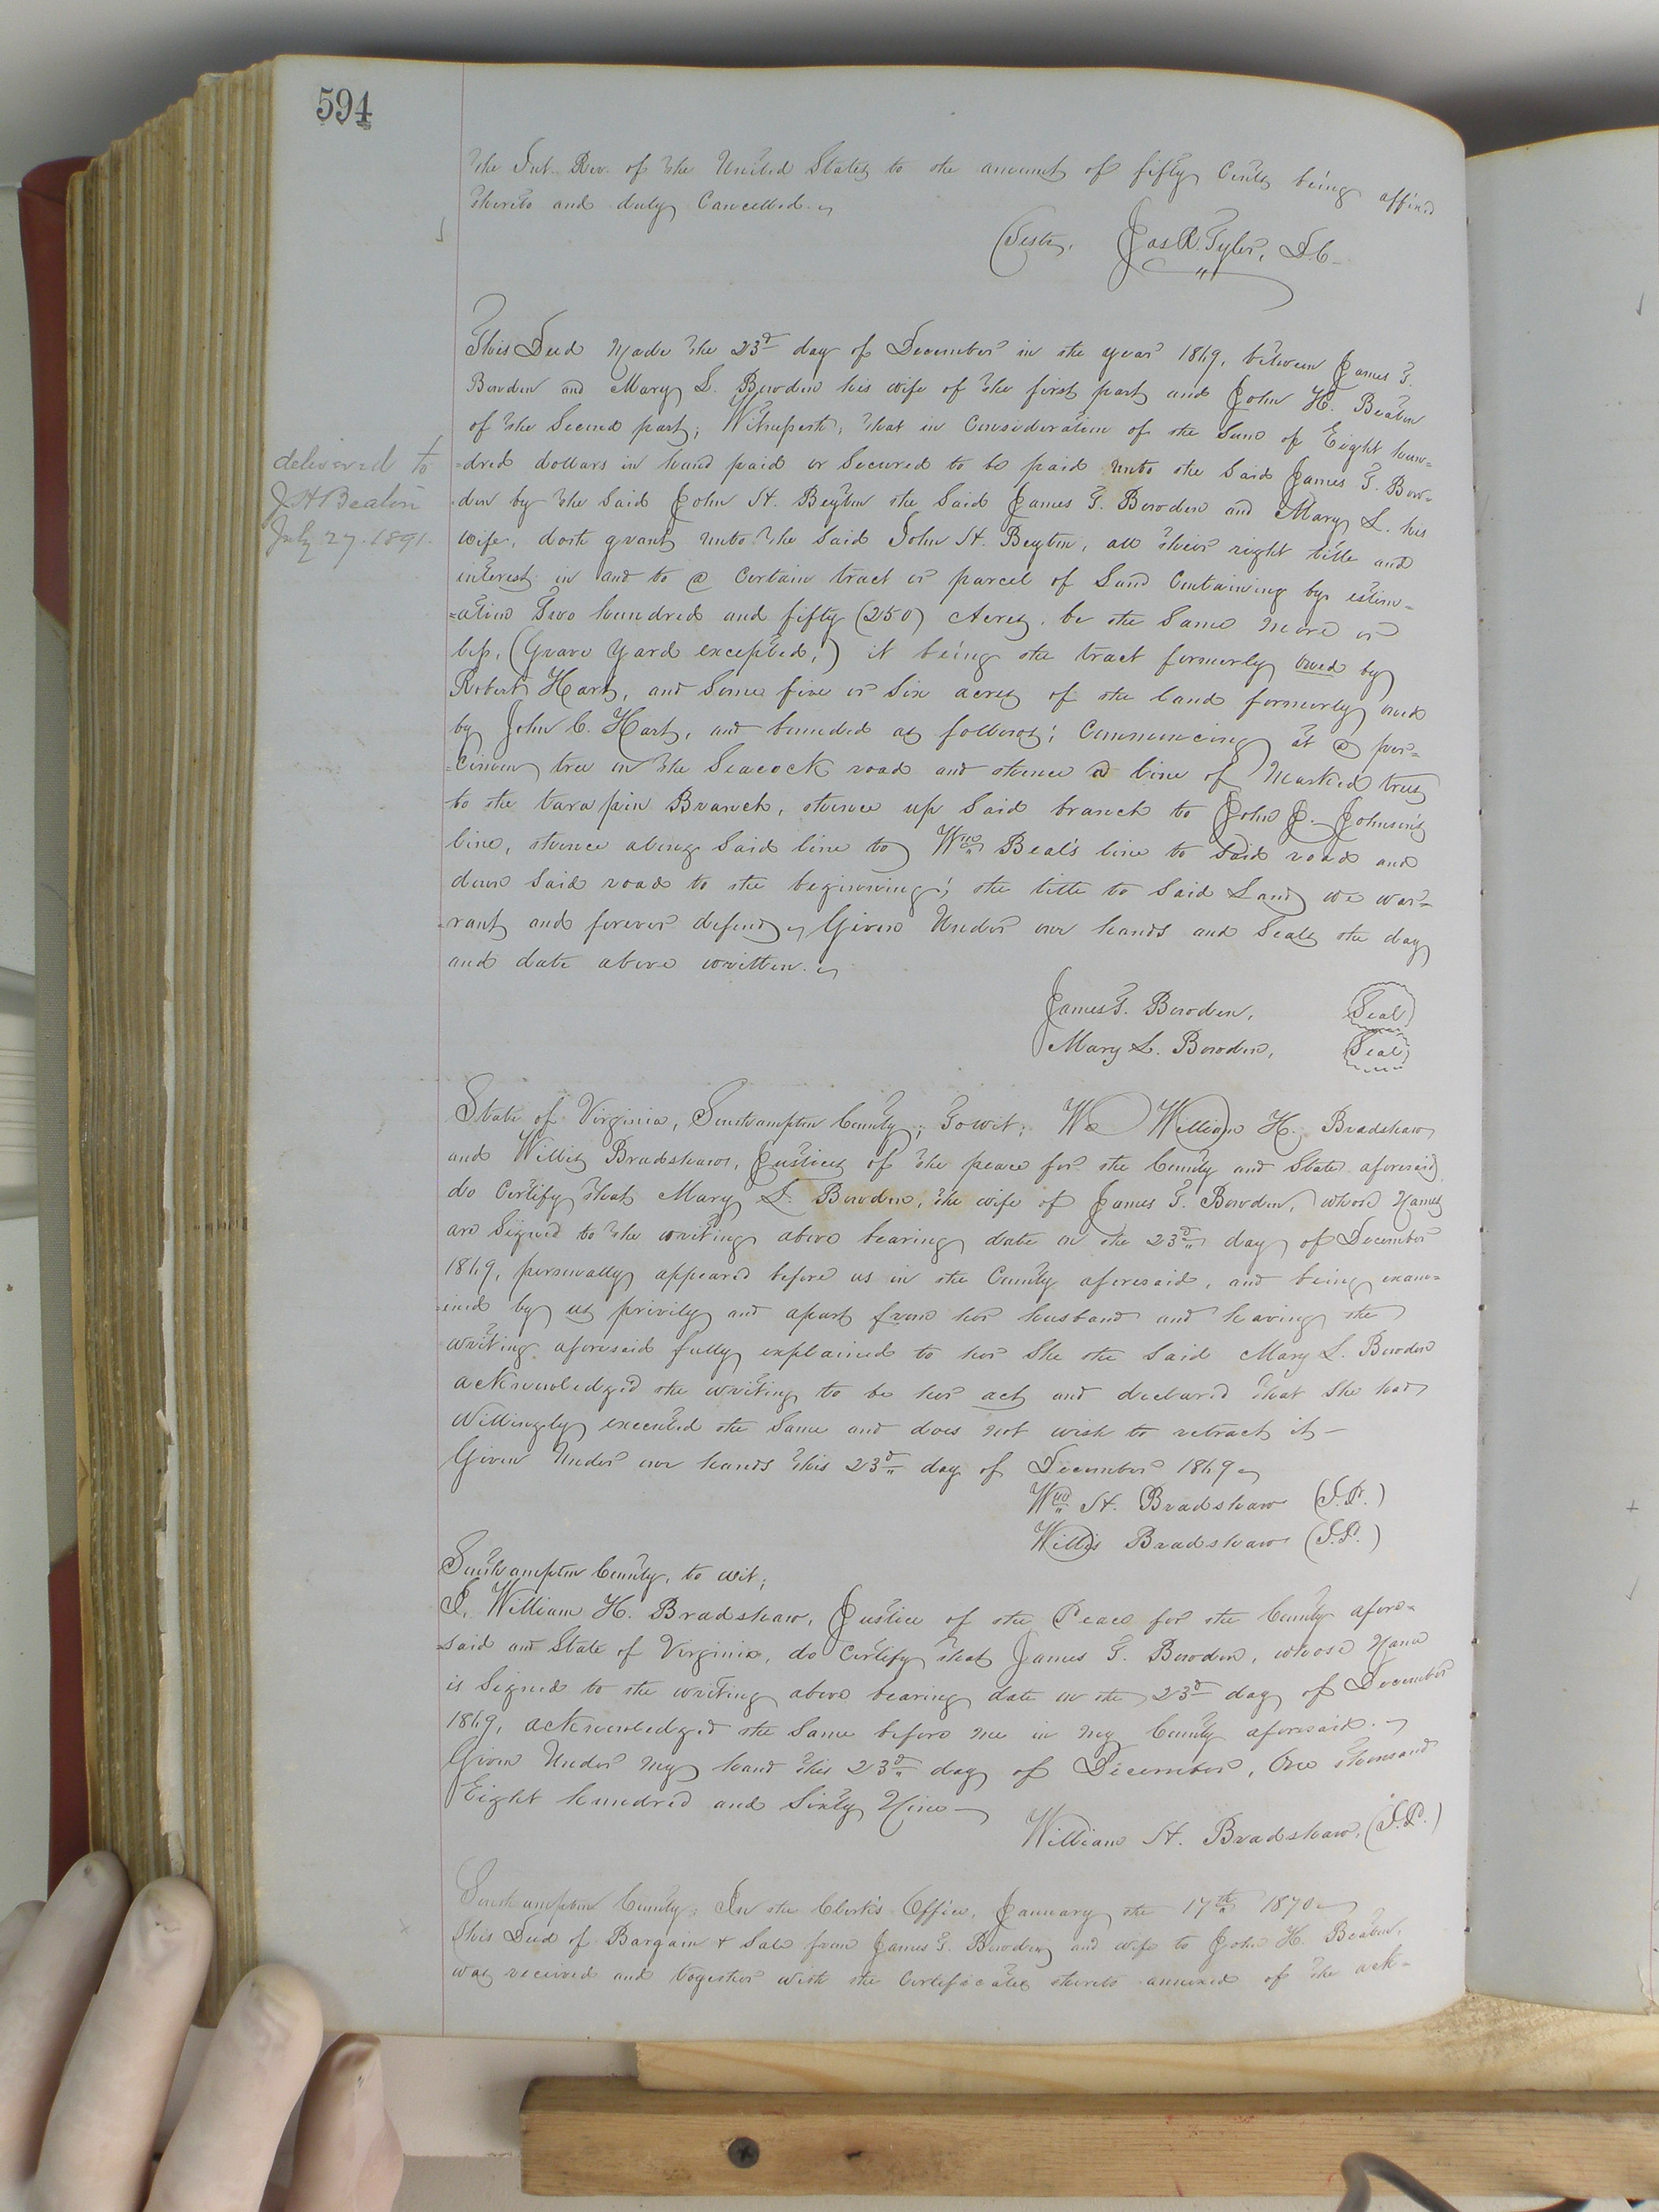 594
the Int. Rev. of the United States to the amount of fifty Cents being affixed
thereto and duly Cancelled.
Teste, Jas R. Tyler, D.C.
This Deed Made the 23d day of December in the year 1869, between James T.
Bowden and Mary L. Bowden his wife of the first part and John H. Beaton
of the Second part; Witnesseth, that in Consideration of the Sum of Eight hun=
delivered to
J H Beaton
July 27. 1891.
=dred dollars in hand paid or Secured to be paid unto the Said James T. Bow=
=den by the Said John H. Beyton the Said James T. Bowden and Mary L. his
wife, doth grant unto the Said John H. Beyton, all their right title and
interest in and to a Certain tract or parcel of Land Containing by estim=
=ation Two hundred and fifty (250) Acres, be the Same More or
less, (Grave Yard excepted,) it being the tract formerly owed by
Robert Hart, and Some five or Six acres of the land formerly owed
by John C. Hart, and bounded as follows; Commencing at a per=
=simon tree on the Seacock road and thence a line of Marked trees
to the tarapin Branch, thence up Said branch to John J. Johnson's
line, thence along Said line to Wm Beal's line to Said road and
down Said road to the beginning; the title to Said Land we war=
=rant and forever defend, Given Under our hands and Seals the day
and date above written.
James T. Bowden, Seal
Mary L. Bowden, Seal
State of Virginia, Southampton County; To wit; We William H. Bradshaw
and Willis Bradshaw, Justices of the peace for the County and State aforesaid
do Certify that Mary L. Bowden, the wife of James T. Bowden, whose Names
are Signed to the writing above bearing date on the 23d day of December
1869, personally appeared before us in the County aforesaid, and being exam=
=ined by us privily and apart from her husband and having the
writing aforesaid fully explained to her She the Said Mary L. Bowden
acknowledged the writing to be her act and declared that She had
Willingly executed the Same and does not wish to retract it—
Given Under our hands this 23d day of December 1869
Wm H. Bradshaw (J.P.)
Willis Bradshaw (J.P.)
Southampton County, to wit;
I, William H. Bradshaw, Justice of the Peace for the County afore=
=said and State of Virginia, do Certify that James T. Bowden, whose Name
is Signed to the writing above bearing date on the 23d day of December
1869, acknowledged the Same before me in my County aforesaid.
Given Under my hand this 23d day of December, One thousand
Eight hundred and Sixty Nine—
William H. Bradshaw, (J.P.)
Southampton County, In the Clerk's Office, January the 17th 1870
This Deed of Bargain & Sale from James T. Bowden and wife to John H. Beaton,
was received and together with the Certificates thereto annexed of the ack=